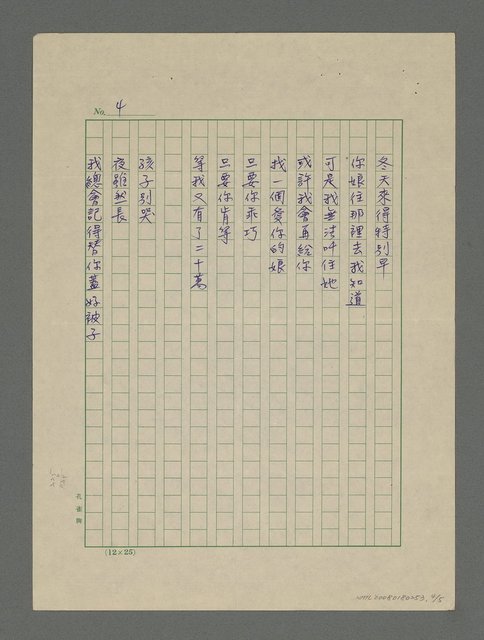 No. 4
冬天來得特別早
你娘往那裡去我知道
可是我無法叫住她
或許我會再給你
找一個愛你的娘
旦要你乖巧
旦要你肯等
等我又有了二十萬
孩子別哭
夜雖然長
我總會記得替你蓋好被子
孔雀牌
(12×25)